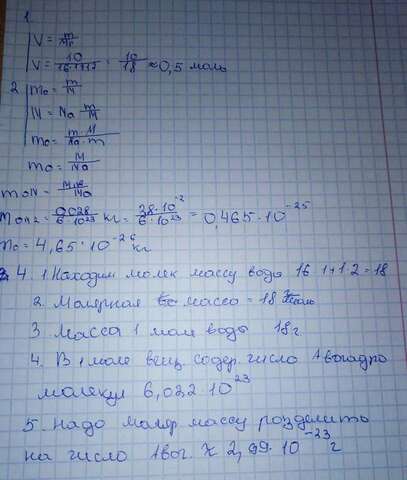 1
V = m/M₀
V = 10/16·1+1·2 = 10/18 ≈ 0,5 моль
2 m₀ = m/N
N = Na m/M
m₀ = m·M/Na·m
m₀ = M/Na
m₀N =
m₀N₂ = 0,028/6·10²³ кг = 28·10⁻²/6·10²³ = 0,465·10⁻²⁵
m₀ = 4,65·10⁻²⁶ кг
4. 1. Находим молек массу воды 16·1+1·2=18
2. Молярная масса = 18
3. Масса 1 моля воды 18 г.
4. В 1 моле вещ. содер. число Авогадро
молекул 6,022·10²³
5. надо моляр. массу розделить
на число Авог. 2,99·10⁻²³ г